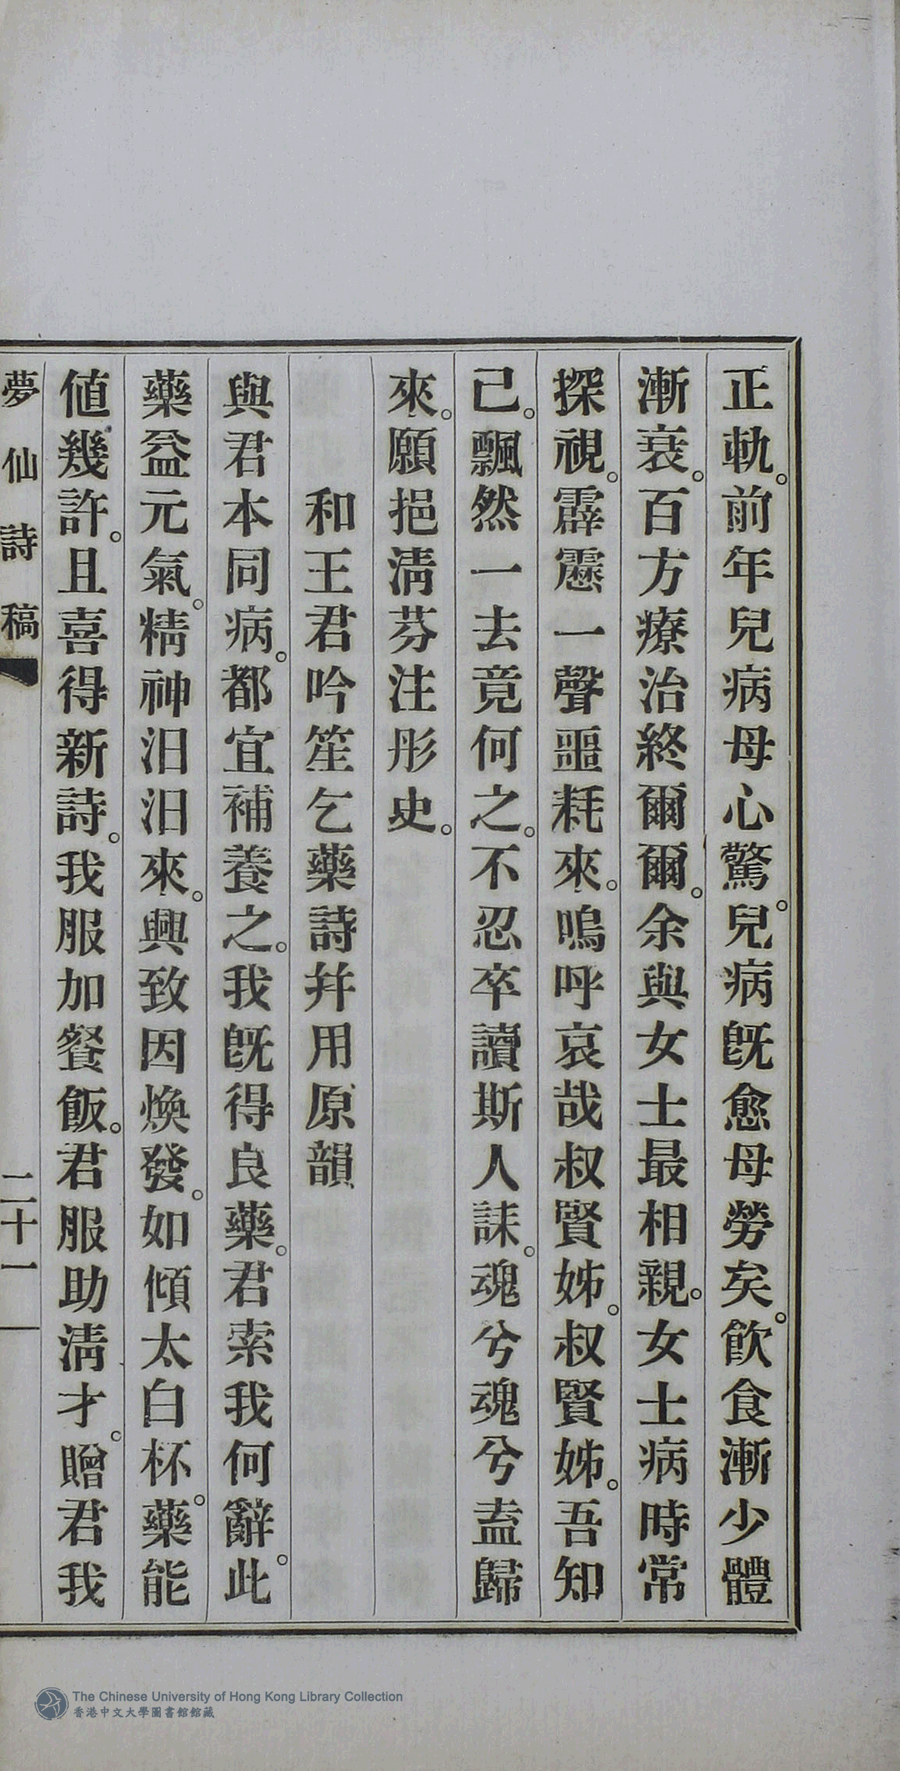 正軌。前年兒病母心驚。兒病旣愈母勞矣。飮食漸少體
漸衰。百方療治終爾爾。余與女士最相親。女士病時常
探視。霹靂一聲噩耗來。嗚呼哀哉叔賢姊。叔賢姊。吾知
己。飄然一去竟何之。不忍卒讀斯人誄。魂兮魂兮盍歸
來。願挹淸芬注彤史。
和王君吟笙乞藥詩幷用原韻
與君本同病。都宜補養之。我旣得良藥。君索我何辭。此
藥益元氣。精神汨汨來。興致因煥發。如傾太白杯。藥能
値幾許。且喜得新詩。我服加餐飯。君服助淸才。贈君我
夢仙詩稿
二十一
The Chinese University of Hong Kong Library Collection
香港中文大學圖書館館藏